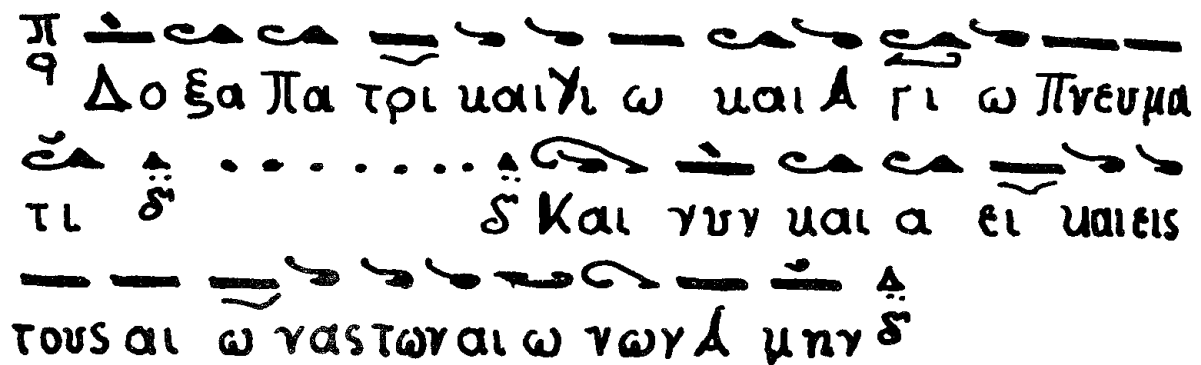 π
q Δο ξα Πα τρι και Υι ω και Α γι ω Πνευμα
τι Δ δ Δ δ Και νυν και α ει και εις
τους αι ω νας των αι ω νων Α μην Δ δ